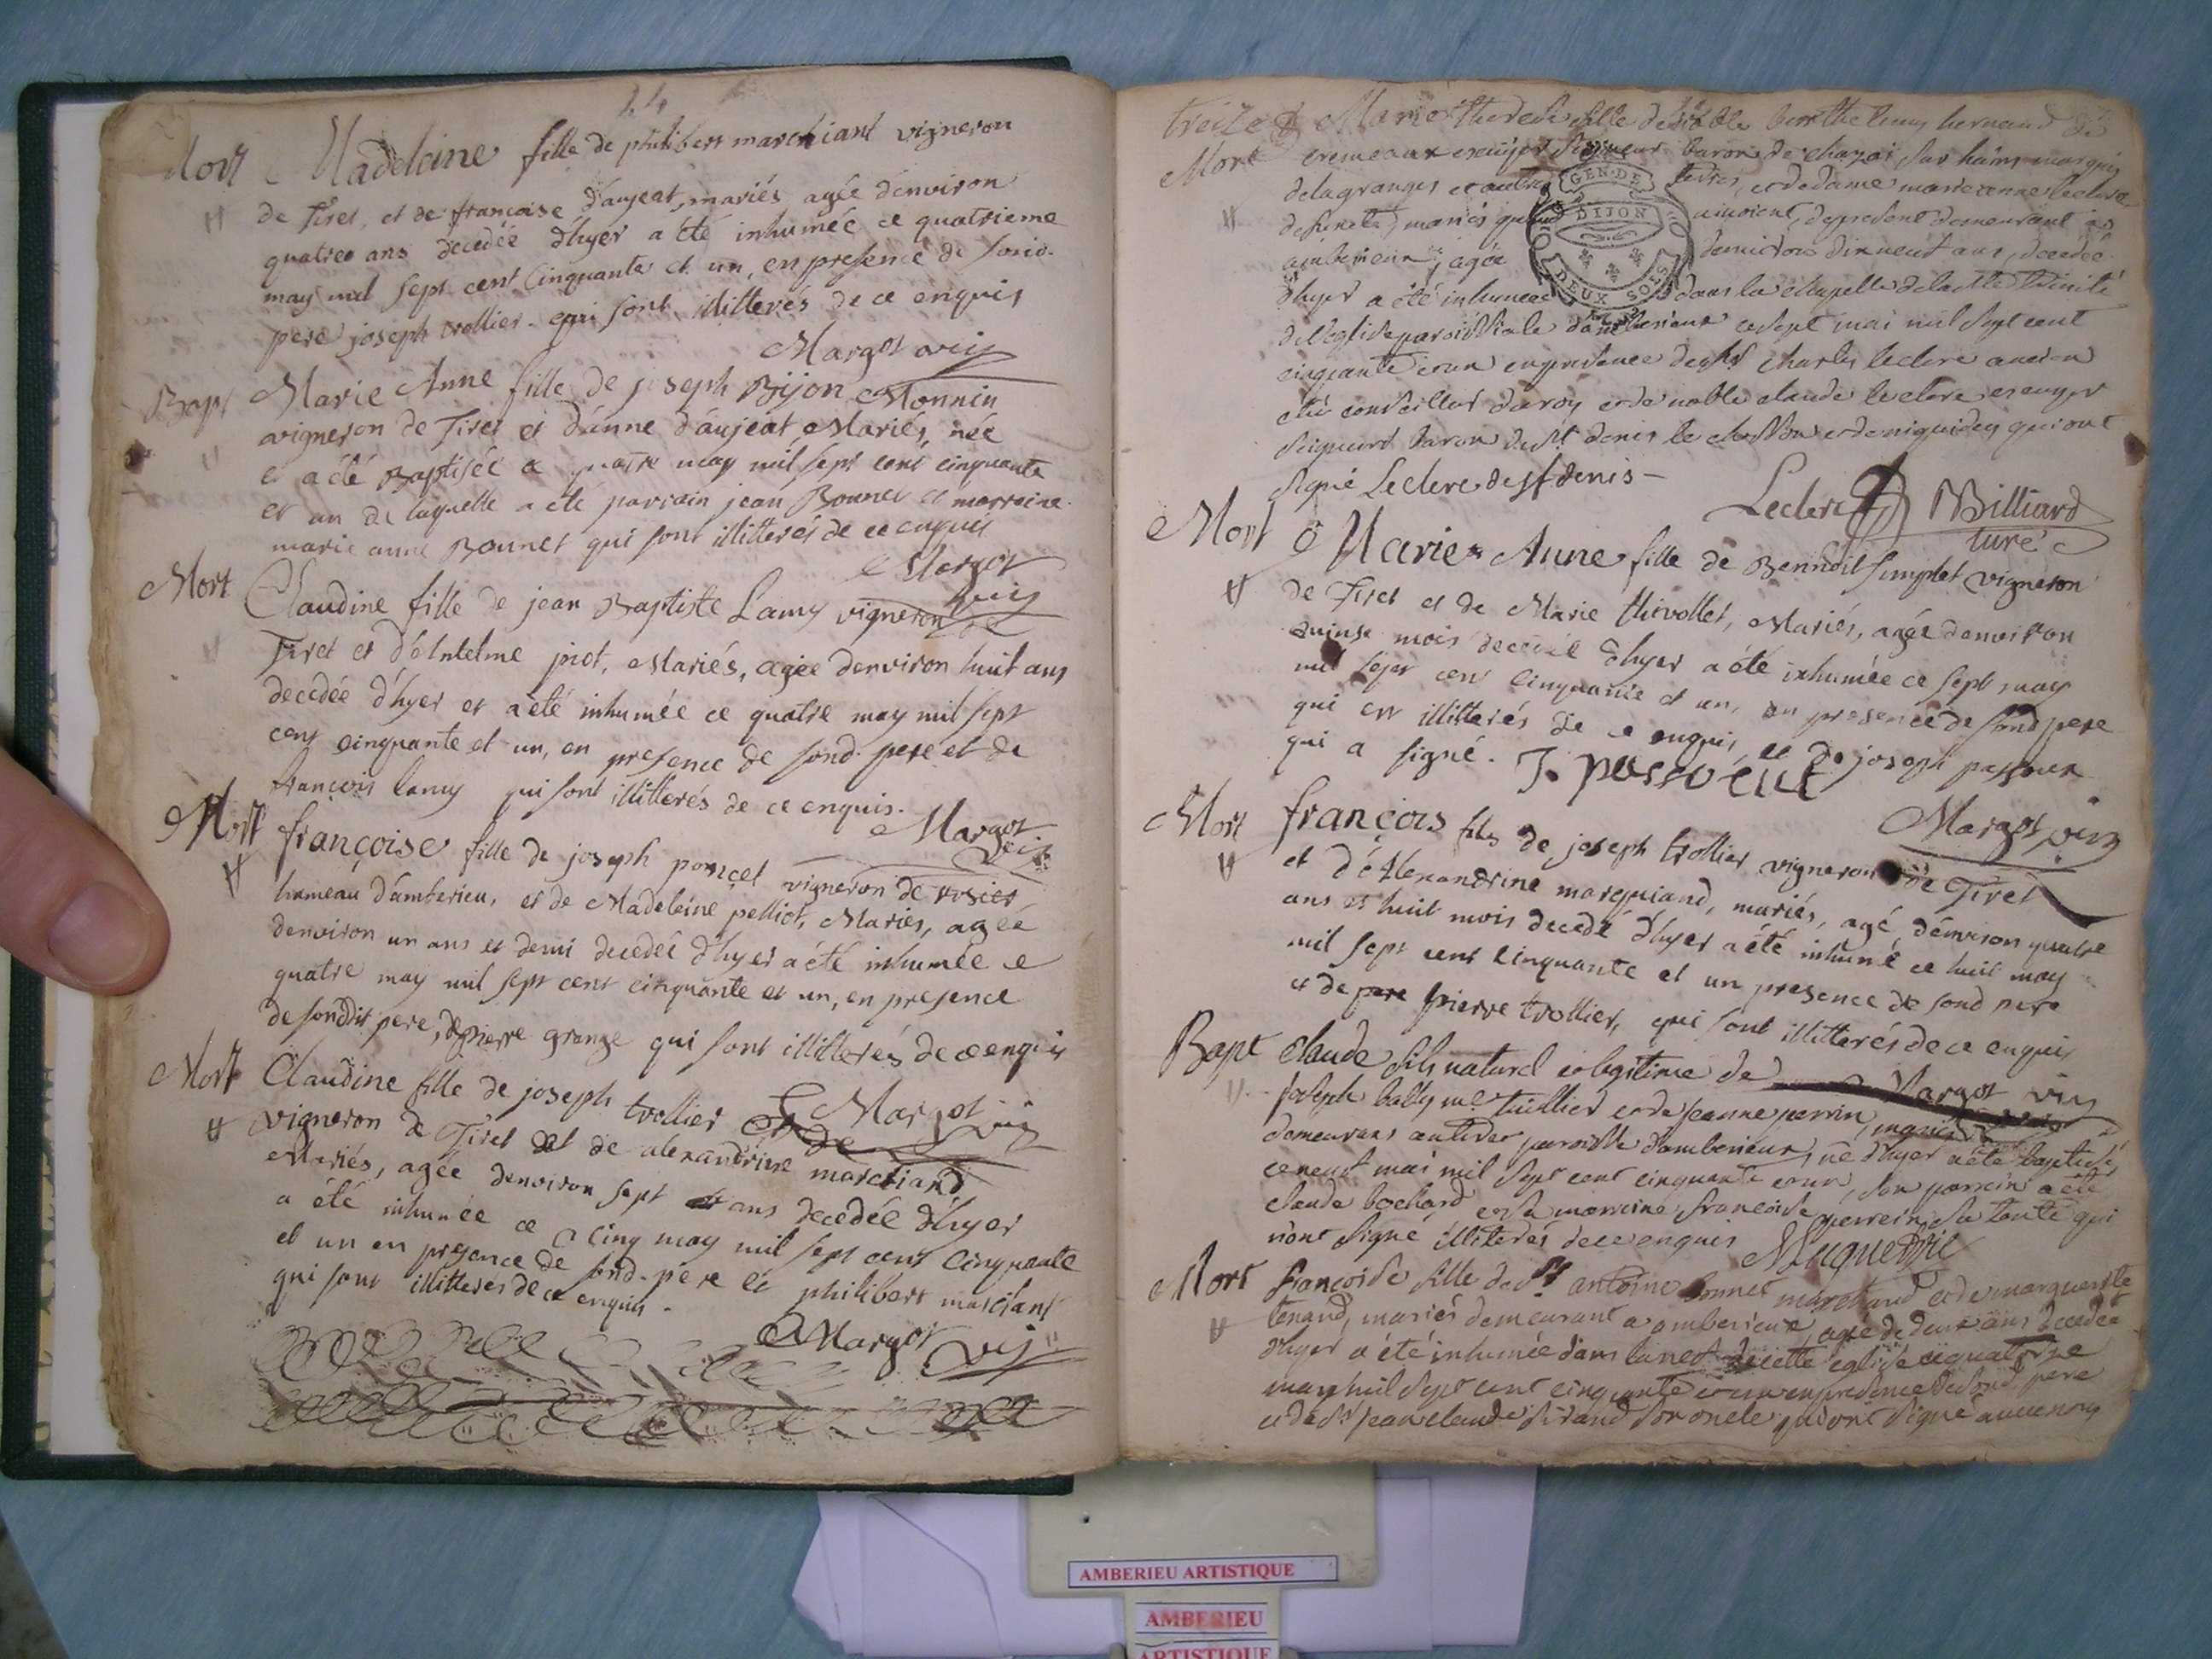 44
Mort Madeleine fille de philibert marchiant vigneron
de Tiret, et de françoise d'aujeat, mariés agée d'environ
quatres ans decedée d'hyer a été inhumée ce quatrieme
may mil sept cent Cinquante et un, en presence de
pere joseph trollier qui sont illiterés de ce enquis
Margot vic
Bapt Marie Anne fille de joseph Bijon Monnin
vigneron de Tiret et d'anne d'aujeat Mariés, née
et a été Baptisée ce quatre may mil sept cent cinquante
et un de laquelle a eté parrain jean Bonnet et marraine
marie anne Bonnet qui sont illitterés de ce enquis
Margot
vic
Mort Claudine fille de jean Baptiste Lamy vigneron de
Tiret et d'Antelme jriot, Mariés, agée denviron huit ans
decedée d'hyer et a été inhumée ce quatre may mil sept
cent cinquante et un, en presence de sond. pere et de
françois lamy qui sont illitterés de ce enquis.
Margot
vic
Mort françoise fille de joseph ponçet vigneron de vosier
hameau d'amberieu, et de Madeleine pelliot, Mariés, agée
denviron un ans et demi decedée d'hyer a été inhumée ce
quatre may mil sept cent cinquante et un, en presence
de sondit pere, de pierre grange qui sont illitterés de ce enquis
Margot vic
Mort Claudine fille de joseph trollier
vigneron de Tiret et de alexandrine marchiand
Mariés, agée denviron sept ans decedée d'hyer
a été inhumée ce cinq may mil sept cent Cinquante
et un en presence de sond. pere et philibert marchiant
qui sont illitterés de ce enquis.
Margot vic
treize
Mort Marie therese fille de noble berthelemy
cremeaux escuyer seigneur baron de chazai sur
de la granges et autres terres, et de dame marie anne leclerc
defuncte, mariés quand vivoient, de present demeurant a
amberieux, agée denviron dixneuf ans, decedée
d'hyer a été inhumée dans la chapelle de la Ste Trinité
de l'eglise paroissiale d'amberieux ce sept mai mil sept cent
cinquante et un en presence de Sr charles leclerc ancien
conseiller du roy et de noble claude leclerc escuyer
seigneur baron de St denis le chosson et qui ont
signé Leclerc de St denis
GEN. DE DIJON
DEUX SOLS
Leclerc Billiard
curé
Mort Marie Anne fille de Bennoit simplet vigneron
de Tiret et de Marie thevollet, Mariés, agée denviron
quinse mois decedée d'hyer a été inhumée ce sept may
mil sept cent Cinquante et un, en presence de sond pere
qui est illitterés de ce enquis, et de joseph
qui a signé.
Margot vic
Mort françois fils de joseph trollier vigneron de Tiret
et d'Alexandrine marquiand, mariés, agé d'environ quatre
ans et huit mois decedé d'hyer a été inhumé ce huit may
mil sept cent Cinquante et un presence de sond pere
et de pierre trollier, qui sont illitterés de ce enquis
Margot vic
Bapt Claude fils naturel et legitime de
joseph bally me tuillier et de jeanne perrin, mariés
demeurans au tiret paroisse d'amberieux, né d'hyer a été baptisé
ce neuf mai mil sept cent cinquante et un, son parrein a été
claude bochard et sa marraine françoise perrein sa tante qui
n'ont signé illiterés de ce enquis
Mort françoise fille de Sr antoine bonnet marchand et de marguerite
tenand, mariés demeurant a amberieux, agée de deux ans decedée
d'hyer a été inhumée dans la nef de cette eglise ce quatorze
may mil sept cent cinquante et un en presence de sond pere
et de Sr jean claude sirand son oncle qui ont signé avec nous
AMBERIEU ARTISTIQUE
AMBERIEU
ARTISTIQUE